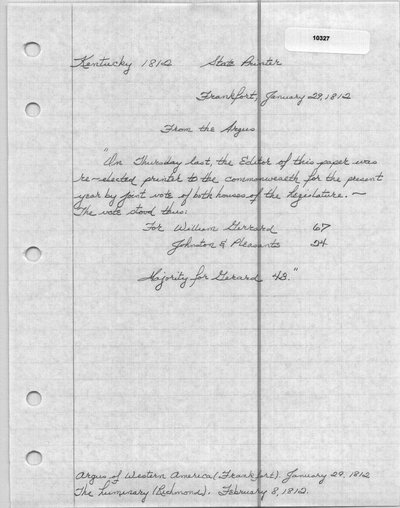 10327
Kentucky 1812 State Printer
Frankfort, January 29, 1812
From the Argus
"On Thursday last, the Editor of this paper was
re-elected printer to the commonwealth for the present
year by joint vote of both houses of the Legislature. ~
The vote stood thus:
For William Gerrard 67
Johnston & Pleasants 24
Majority for Gerard 43."
Argus of Western America (Frankfort). January 29, 1812
The Luminary (Richmond). February 8, 1812.